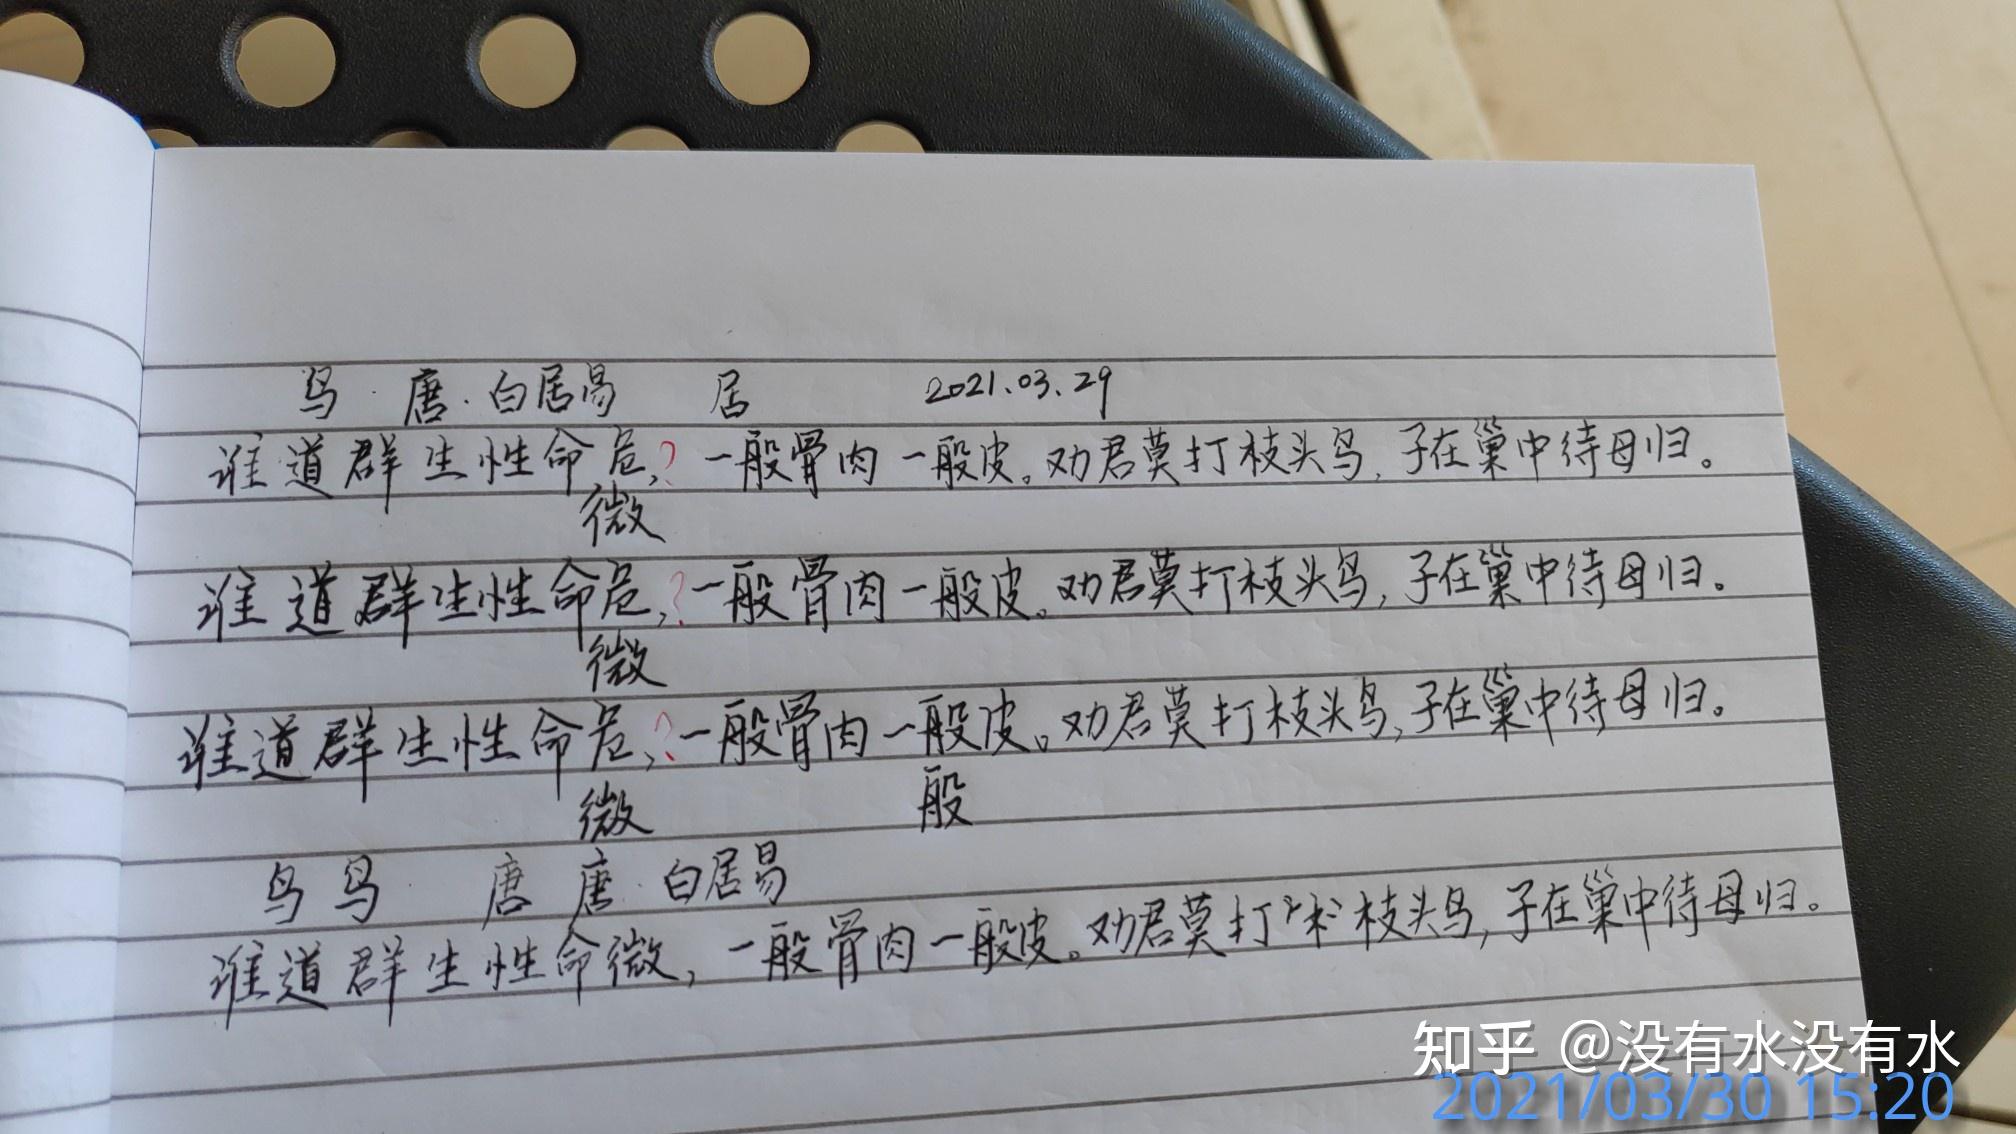 鸟·唐·白居易 居 2021.03.29
谁道群生性命危,?一般骨肉一般皮。劝君莫打枝头鸟,子在巢中待母归。
微
谁道群生性命危,?一般骨肉一般皮。劝君莫打枝头鸟,子在巢中待母归。
微
谁道群生性命危,?一般骨肉一般皮。劝君莫打枝头鸟,子在巢中待母归。
微 般
鸟鸟· 唐唐·白居易
谁道群生性命微,一般骨肉一般皮。劝君莫打枝头鸟,子在巢中待母归。
知乎 @没有水没有水
2021/03/30 15:20